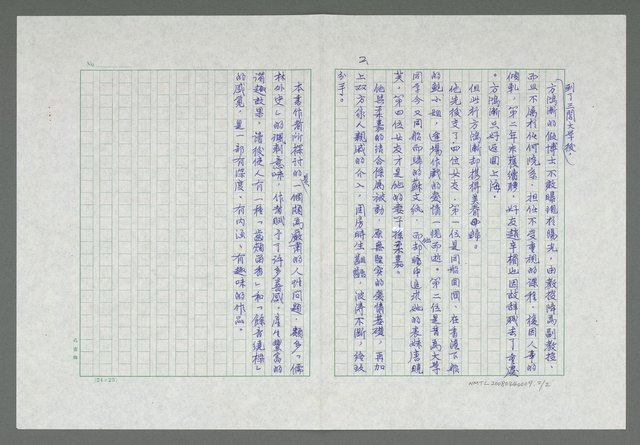 到了三閭大學後，
方鴻漸的假博士不敢曝現於陽光，由教授降為副教授，
而且不屬於任何院系，担任不受重視的課程，後因人事的
傾軋，第二年未獲續聘，好友趙辛楣也因故辭職去了重慶
。方鴻漸只好返回上海。
但此行方鴻漸却携得美眷而歸。
他先後交了四位女友，第一位是同船回國，在香港下船
的鮑小姐，逢場作戲的愛情一現而逝。第二位是昔為大學
同學今又同船而歸的蘇文紈，而却暗中追求她的表妹唐曉
芙，第四位女友才是他的妻子孫柔嘉。
他與柔嘉的結合係屬被動，原無堅實的愛情基礎，再加
上双方家人親戚的介入，因房時生齟齬，波濤不斷，終致
分手。
2
本書作者所探討的是一個頗為嚴肅的人性問題，頗多「儒
林外史」的諷刺意味，作者賦予了許多靈感，產生豐富的
諧趣效果，讀後使人有一種「齒頰留香」和「餘音繞樑」
的感覺，是一部有深度、有內涵、有趣味的作品。
No
(24×25)
NMTL20080260009 2/2